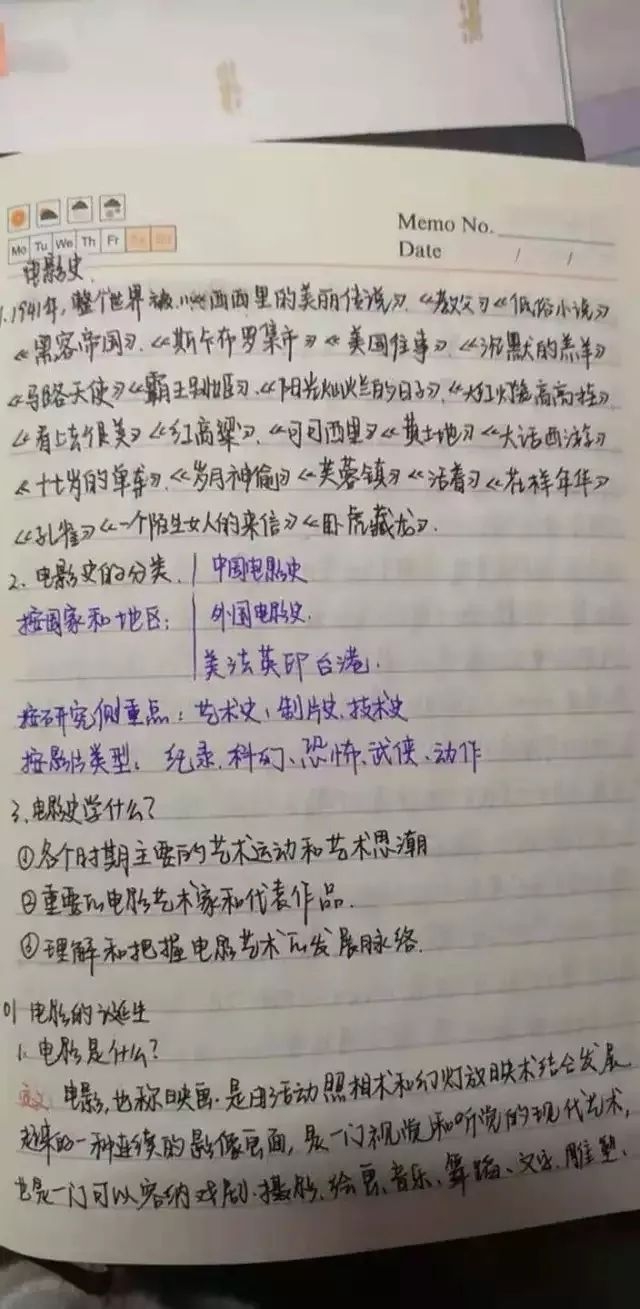 Memo No.
Mo Tu We Th Fr
Date / /
电影史
1.1941年,整个世界被 西西里的美丽传说》.《教父》《低俗小说》
《黑客帝国》.《斯卡布罗集市》《美国往事》.《沉默的羔羊》
《马路天使》《霸王别姬》.《阳光灿烂的日子》.《大红灯笼高高挂》
《看上去很美》《红高粱》.《可可西里》《黄土地》《大话西游》
《十七岁的单车》.《岁月神偷》《芙蓉镇》《活着》《花样年华》
《孔雀》《一个陌生女人的来信》《卧虎藏龙》.
2.电影史的分类. 中国电影史
按国家和地区: 外国电影史.
美法英印台港.
按研究侧重点:艺术史、制片史、技术史
按影片类型: 纪录.科幻、恐怖、武侠、动作
3.电影史学什么?
①各个时期主要的艺术运动和艺术思潮
②重要的电影艺术家和代表作品.
③理解和把握电影艺术的发展脉络.
01 电影的诞生
1.电影是什么?
定义 电影,也称映画.是由活动照相术和幻灯放映术结合发展
起来的一种连续的影像画面,是一门视觉和听觉的现代艺术,
也是一门可以容纳戏剧.摄影.绘画、音乐、舞蹈、文字.雕塑、